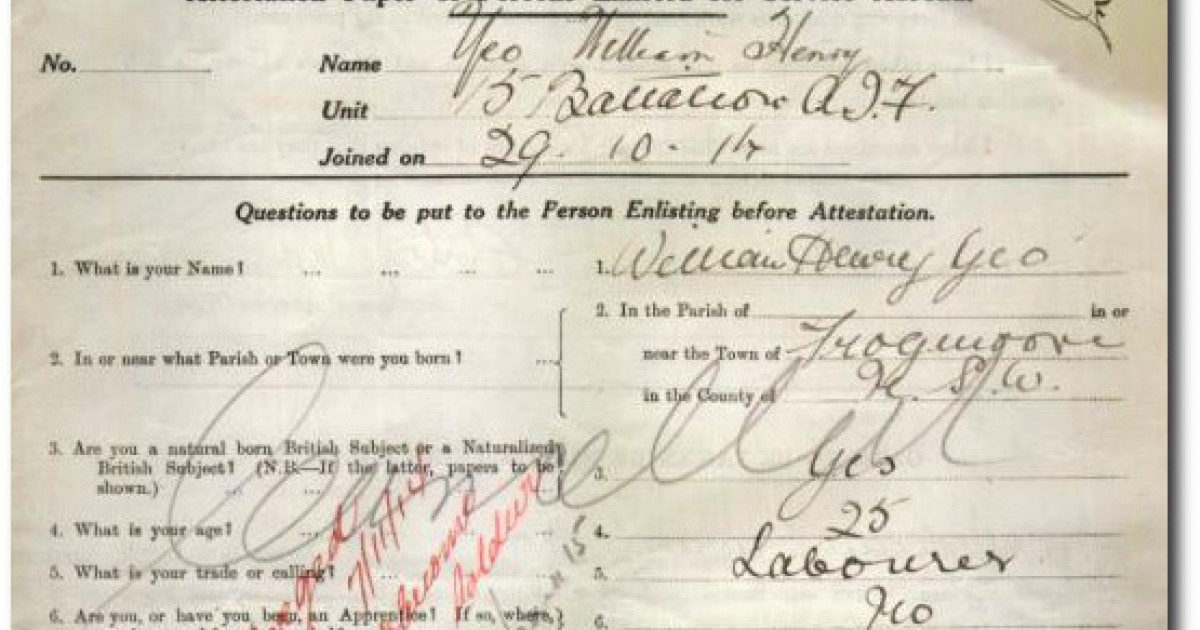 Attestation Paper of Persons Enlisted for Service Abroad.
No. Name Yeo William Henry
Unit 15 Battalion A.I.F.
Joined on 29-10-14
Questions to be put to the Person Enlisting before Attestation.
1. What is your Name? ... ... ... ... 1. William Henry Yeo
2. In or near what Parish or Town were you born? ... 2. In the Parish of in or
near the Town of Frogmoore
in the County of N. S. W.
3. Are you a natural born British Subject or a Naturalized
British Subject? (N.B.—If the latter, papers to be
shown.) ... ... 3. Yes
4. What is your age? ... ... 4. 25
5. What is your trade or calling? ... ... 5. Labourer
6. Are you, or have you been, an Apprentice? If so, where, 6. No
Cancelled
7/11/14